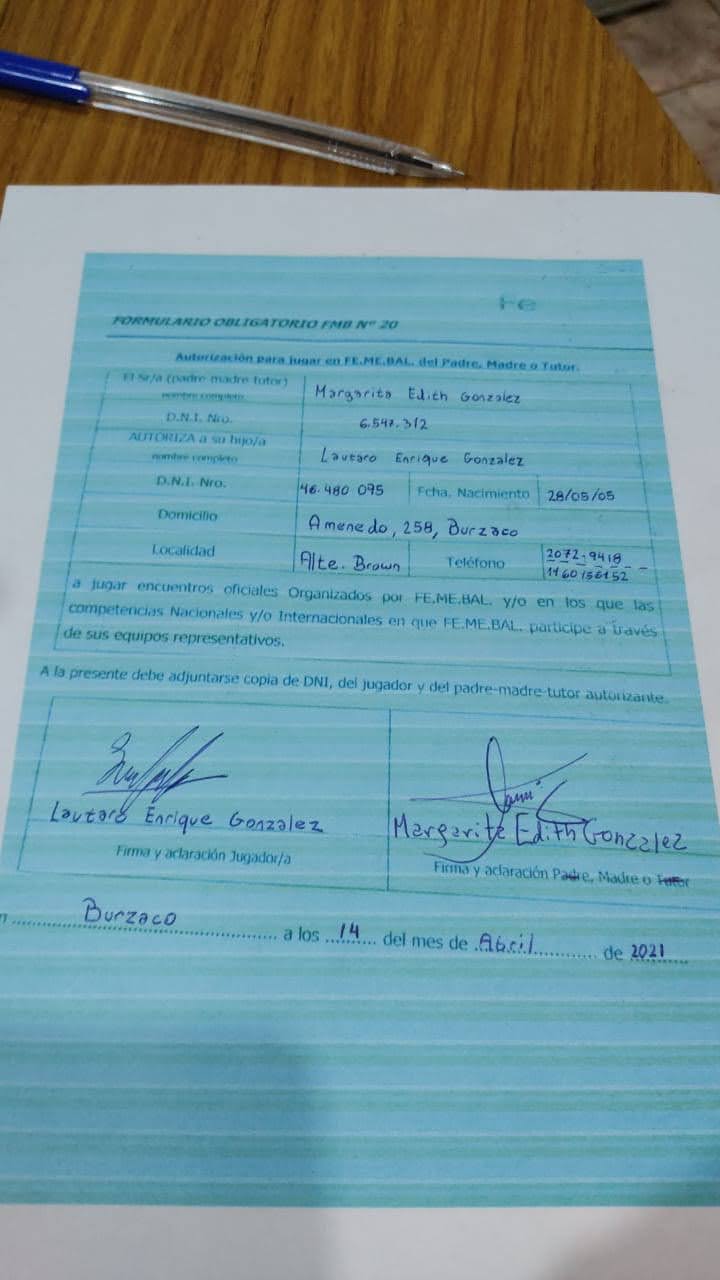 FORMULARIO OBLIGATORIO FMB Nº 20
Autorización para jugar en FE.ME.BAL. del Padre, Madre o Tutor.
El Sr/a (padre madre tutor)
nombre completo
Margarita Edith Gonzalez
D.N.I. Nro.
6.547.312
AUTORIZA a su hijo/a
nombre completo
Lautaro Enrique Gonzalez
D.N.I. Nro.
46.480 095
Fcha. Nacimiento
28/05/05
Domicilio
Amenedo, 258, Burzaco
Localidad
Alte. Brown
Teléfono
2072-9418
1160156152
a jugar encuentros oficiales Organizados por FE.ME.BAL. y/o en los que las
competencias Nacionales y/o Internacionales en que FE.ME.BAL. participe a través
de sus equipos representativos.
A la presente debe adjuntarse copia de DNI, del jugador y del padre-madre-tutor autorizante.
Lautaro Enrique Gonzalez
Firma y aclaración Jugador/a
Margarita Edith Gonzalez
Firma y aclaración Padre, Madre o Tutor
Burzaco a los 14 del mes de Abril de 2021